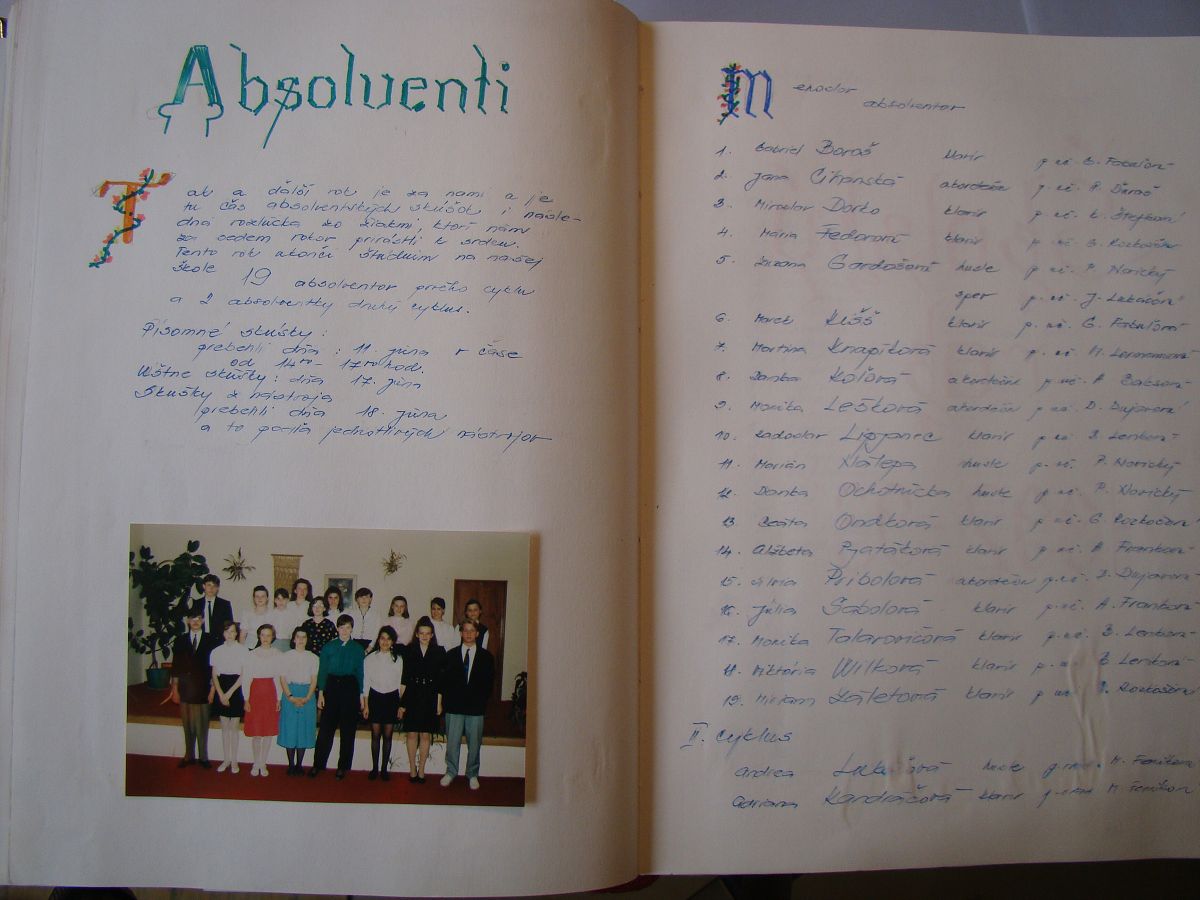 Absolventi
Tak a ďalší rok je za nami a je
tu čas absolventských skúšok i násle-
dná rozlúčka so žiakmi, ktorí nám
za sedem rokov prirástli k srdcu.
Tento rok ukončí štúdium na našej
škole 19 absolventov prvého cyklu
a 2 absolventky druhý cyklus.
Písomné skúšky:
prebehli dňa: 11. júna v čase
od 14⁰⁰ - 17⁰⁰ hod.
Ústne skúšky: dňa 17. júna
Skúšky z nástroja
prebehli dňa 18. júna
a to podľa jednotlivých nástrojov
Menoslov
absolventov
1. Gabriel Boroš klavír p. uč.
2. Jana akordeón p. uč.
3. Miroslav Dorko klavír p. uč.
4. Mária Fedorová klavír p. uč.
5. Zuzana Gardošová husle p. uč. P. Novický
spev p. uč. J.
6. Marek Kišš klavír p. uč. G.
7. Martina Knapíková klavír p. uč.
8. Danka Koľová akordeón p. uč.
9. Monika Lešková akordeón p. uč. D.
10. Radoslav Lipjanec klavír p. uč.
11. Marián Nálepa husle p. uč. P. Novický
12. Danka Ochotnícka husle p. uč. P. Novický
13. Beáta Ondková klavír p. uč.
14. Alžbeta Pjatáková klavír p. uč. A.
15. Silvia Pribolová akordeón p. uč. D.
16. Júlia Sabolová klavír p. uč. A.
17. Monika Talarovičová klavír p. uč.
18. Viktória Wilková klavír p. uč.
19. Miriam Záletová klavír p. uč.
II. cyklus
Andrea husle p. uč. M.
Adriana Kandráčová klavír p. uč. M.